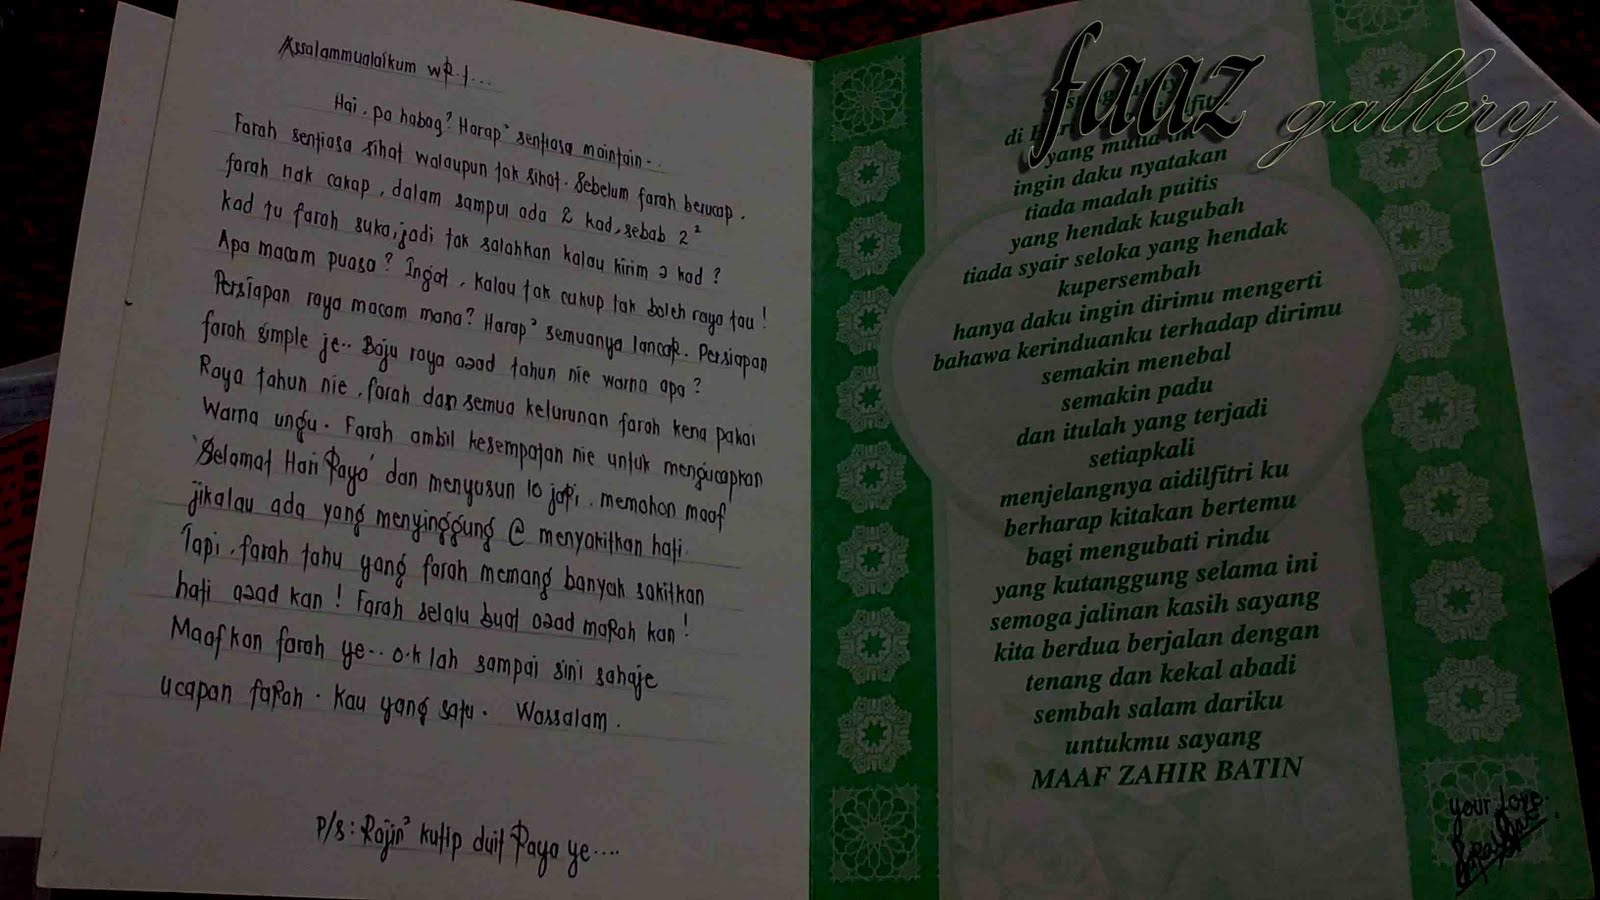 Assalammualaikum WR.1...
Hai. pa habag? Harap² sentiasa maintain..
Farah sentiasa sihat walaupun tak sihat. Sebelum farah berucap.
farah nak cakap, dalam sampul ada 2 kad, sebab 2²
kad tu farah suka, jadi tak salahkan kalau kirim 2 kad?
Apa macam puasa? Ingat, kalau tak cukup tak boleh raya tau!
Persiapan raya macam mana? Harap² semuanya lancar. Persiapan
farah simple je.. Baju raya azad tahun nie warna apa?
Raya tahun nie, farah dan semua kelurunan farah kena pakai
Warna ungu. Farah ambil kesempatan nie untuk mengucapkan
'Selamat Hari Raya' dan menyusun 10 jari. memohon maaf
jikalau ada yang menyinggung @ menyakitkan hati.
Tapi, farah tahu yang farah memang banyak sakitkan
hati azad kan! Farah selalu buat azad marah kan!
Maafkan farah ye.. o.k lah sampai sini sahaje
ucapan farah. Kau yang satu. Wassalam.
P/s: Rajin² kutip duit Raya ye....
faaz gallery
di
yang mulia
ingin daku nyatakan
tiada madah puitis
yang hendak kugubah
tiada syair seloka yang hendak
kupersembah
hanya daku ingin dirimu mengerti
bahawa kerinduanku terhadap dirimu
semakin menebal
semakin padu
dan itulah yang terjadi
setiapkali
menjelangnya aidilfitri ku
berharap kitakan bertemu
bagi mengubati rindu
yang kutanggung selama ini
semoga jalinan kasih sayang
kita berdua berjalan dengan
tenang dan kekal abadi
sembah salam dariku
untukmu sayang
MAAF ZAHIR BATIN
your love.